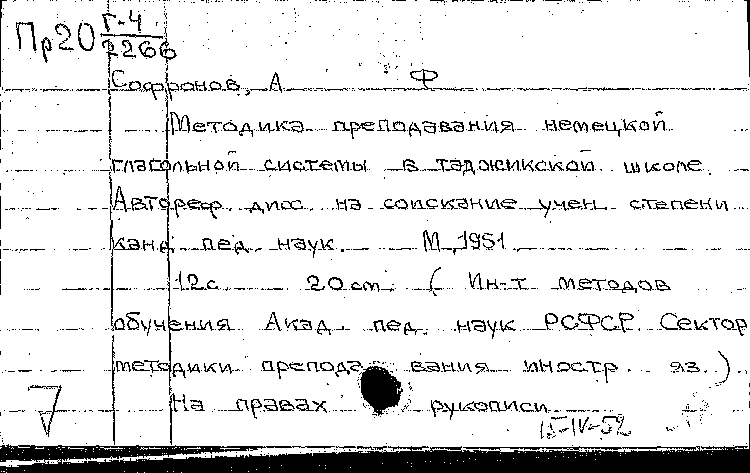 Пр20 Г-4
2266
Софронов, А Ф
Методика преподавания немецкой
глагольной системы в таджикской школе.
Автореф. дисс. на соискание учен. степени
канд. пед. наук. М., 1951.
12с. 20 см. (Ин-т методов
обучения Акад. пед. наук РСФСР. Сектор
методики преподавания иностр. яз.).
На правах рукописи
15-IV-52